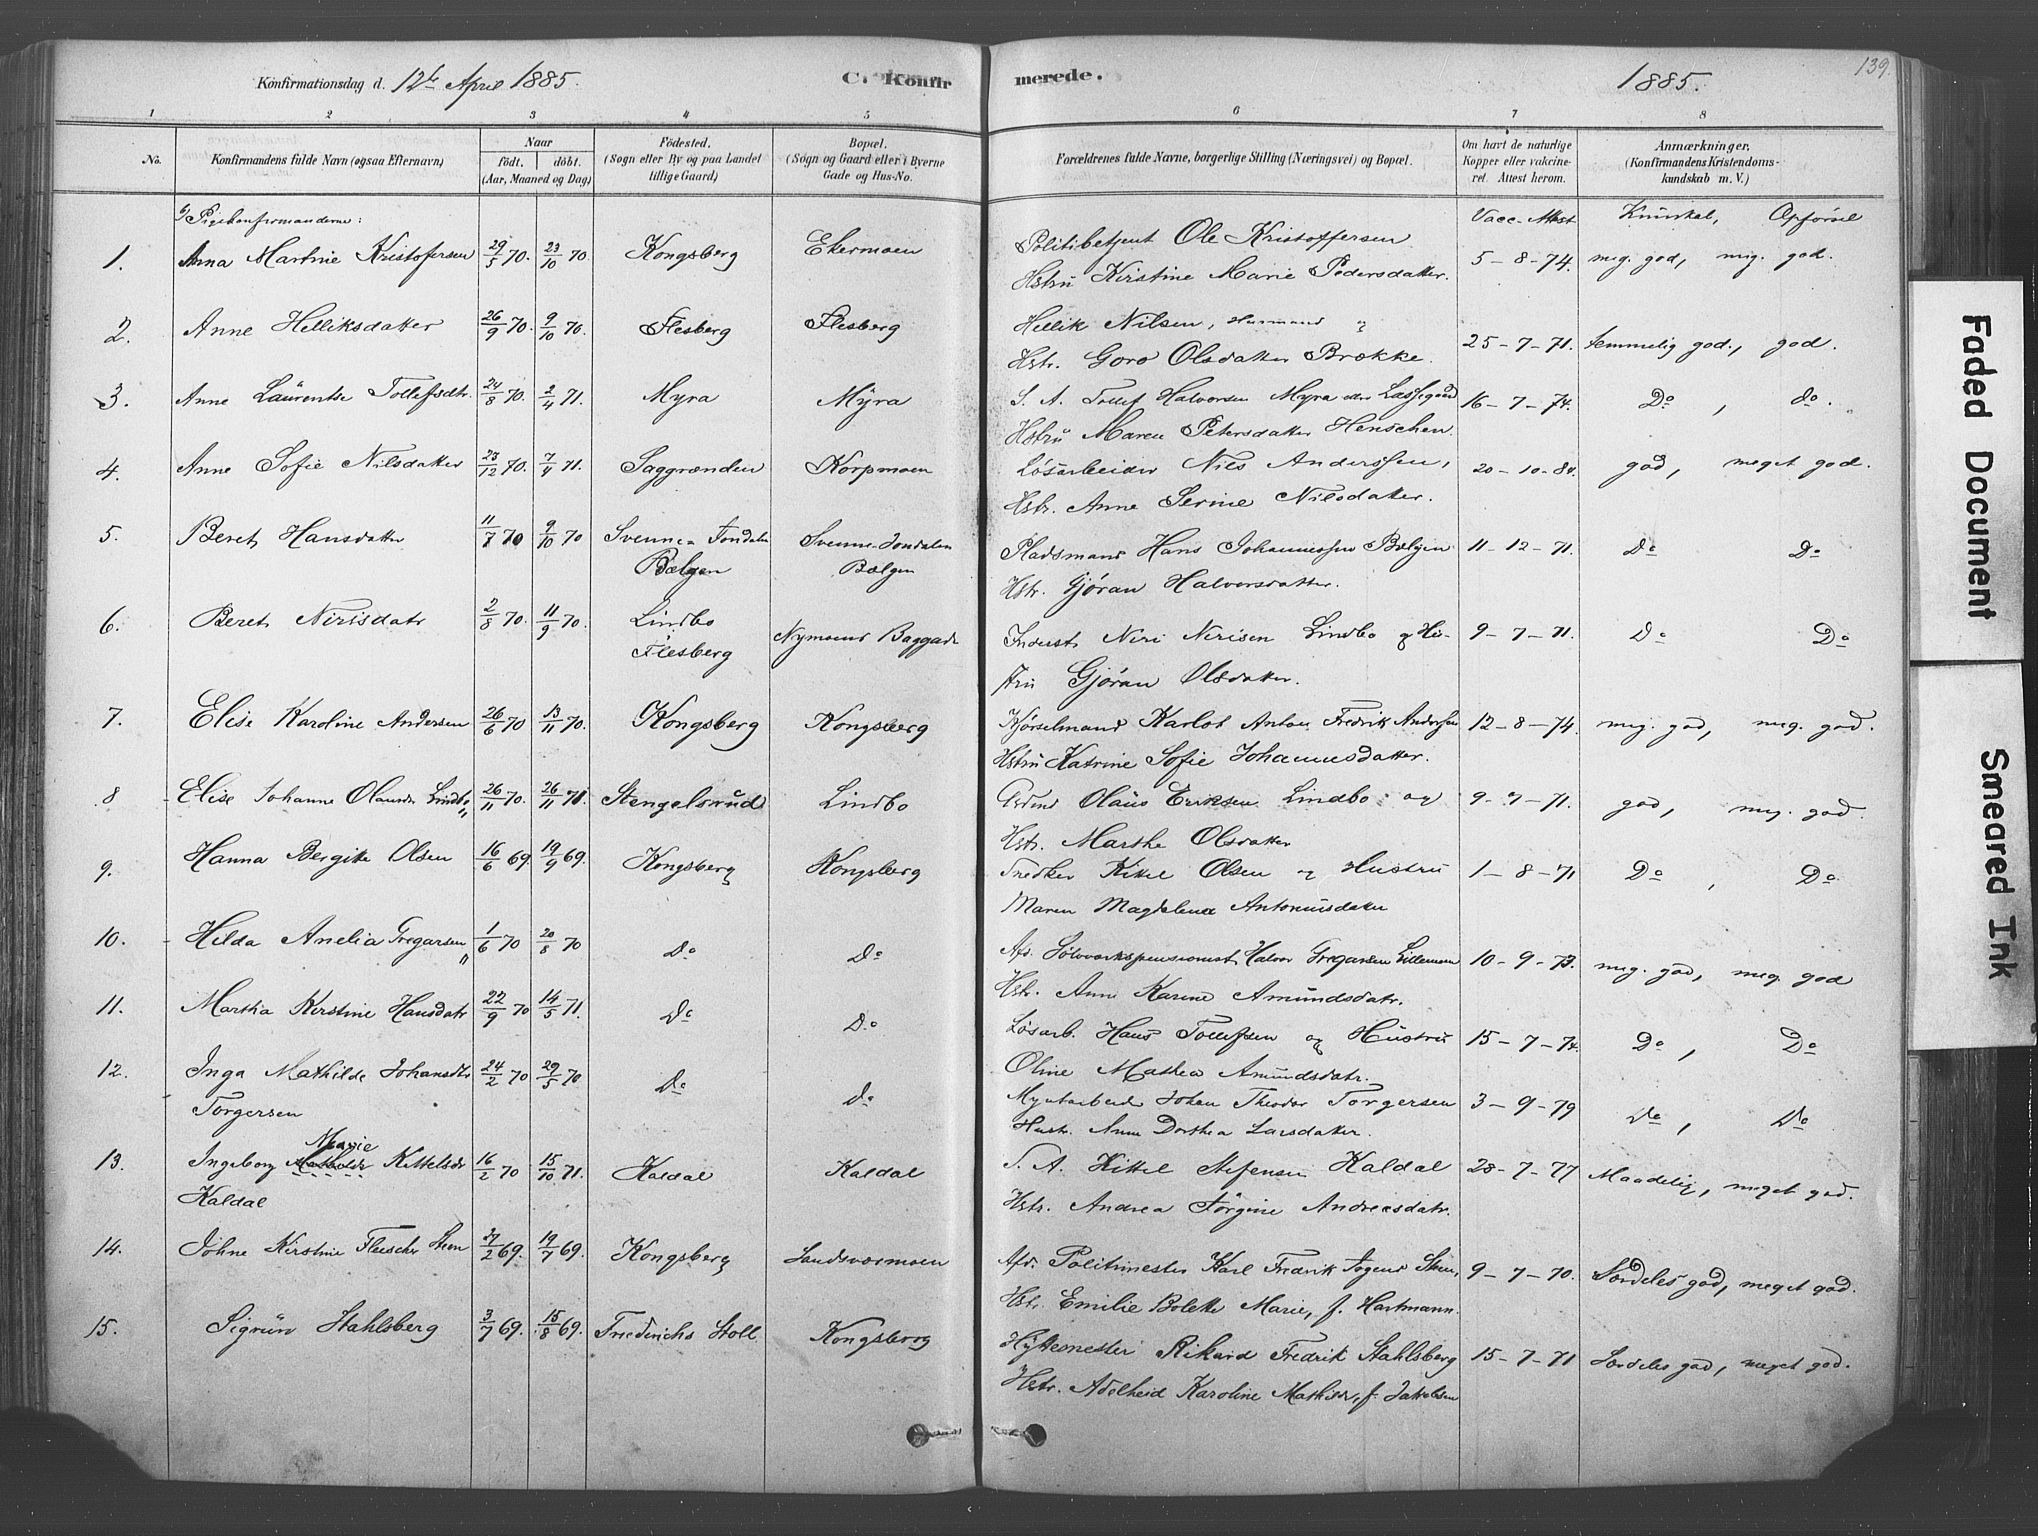 Konfirmationsdag d. 12te April 1885. C. Konfirmerede. 1885. 139.
1 2 3 4 5 6 7 8
No. Konfirmandens fulde Navn (ogsaa Efternavn) Naar födt. döbt. (Aar, Maaned og Dag) Födested. (Sogn eller By og paa Landet tillige Gaard) Bopæl. (Sogn og Gaard eller i Byerne Gade og Hus-No. Forældrenes fulde Navne, borgerlige Stilling (Næringsvei) og Bopæl. Om havt de naturlige Kopper eller vakcineret. Attest herom. Anmærkninger. (Konfirmandens Kristendomskundskab m. V.)
b/ Pigekonfirmanderne: Vacc. Attest Kundskab, Opførsel
1. Anna Martine Kristoffersen 29/5 70. 23/10 70. Kongsberg Ekermoen Politibetjent Ole Kristoffersen 5-8-74. meg. god, meg. god.
Hstru Kirstine Marie Pedersdatter.
2. Anne Helliksdatter 26/9 70. 9/10 70. Flesberg Flesberg Hellik Nilsen, Husmand og 25-7-71. temmelig god., god.
Hstr. Goro Olsdatter Brække.
3. Anne Laurentse Tollefsdtr. 24/8 70. 2/4 71. Myra Myra S. A. Tollef Halvorsen Myra 16-7-74. Do, do.
Hstru Maren Petersdatter Henschen.
4. Anne Sofie Nilsdatter 23/12 70. 7/4 71. Saggrenden Korpmoen Løsarbeider Nils Anderssen, 20-10-80. god, meget god.
Hstr. Anne Serine Nilsdatter.
5. Beret Hansdatter 11/7 70 9/10 70 Svenne-Jondalen Svenne-Jondalen Pladsmand Hans Johannessen Bælgen 11-12-71. Do Do
Bælgen Bælgen Hstr. Gjøran Halvorsdatter.
6. Beret Nirisdatr 2/8 70. 11/9 70. Lindbo Nymoens Baggade Inderst Niri Nirisen Lindbo og Hu- 9-7-71. Do Do
Flesberg stru Gjøran Olsdatter.
7. Elise Karoline Andersen 26/6 70 13/11 70. Kongsberg Kongsberg Kjørselmand Karlot Anton Fredrik Anderssen 12-8-74. meg. god, meg. god.
Hstru Katrine Sofie Johannesdatter.
8 Elise Johanne Olausdr Lindbo 26/11 70. 26/11 71. Stengelsrud Lindbo Olaus Eriksen Lindbo og 9-7-71. god, meg. god.
Hstr. Marthe Olsdatter
9. Hanna Bergitte Olsen 16/6 69 19/9 69. Kongsberg Kongsberg Snedker Kittel Olsen og Hustru 1-8-71 Do, Do
Maren Magdalena Antoniusdatter
10. Hilda Amelia Gregarsen 1/6 70 20/8 70 Do Do Afd. Sølvværkspensionist Halvor Gregarsen Lillemoen 10-9-73. meg. god, meg. god
Hstr. Anne Karine Amundsdatr.
11. Martha Kirstine Hansdatr 22/9 70 14/5 71. Do Do Løsarb. Hans Tollefsen og Hustru 15-7-74. Do, Do
Oline Mathea Amundsdatr.
12. Inga Mathilde Johansdtr 24/2 70 29/5 70 Do do Myntarbeider Johan Theodor Torgersen 3-9-79 Do, Do
Torgersen Hustr. Anne Dorthea Larsdatter.
13. Ingeborg Mathilde Marie Kittelsdr 16/2 70 15/10 71. Kaldal Kaldal S. A. Kittel Stefensen Kaldal 28-7-77 Maadelig, meget god.
Kaldal Hstr. Andrea Jörgine Andreasdatr.
14. Johne Kirstine Fleischer Steen 27/2 69. 19/7 69. Kongsberg Sandsværmoen Afd. Politimester Karl Fredrik Steen, 9-7-70. Særdeles god, meget god.
Hstr. Emilie Bolette Marie, f. Hartmann.
15. Sigrun Stahlsberg 3/7 69. 15/8 69. Friedrichs Stoll Kongsberg Hyttemester Rikard Fredrik Stahlsberg 15-7-71 Særdeles god, meget god.
Hstr. Adelheid Karoline Mathilde, f. Jakobsen
Faded Document
Smeared Ink